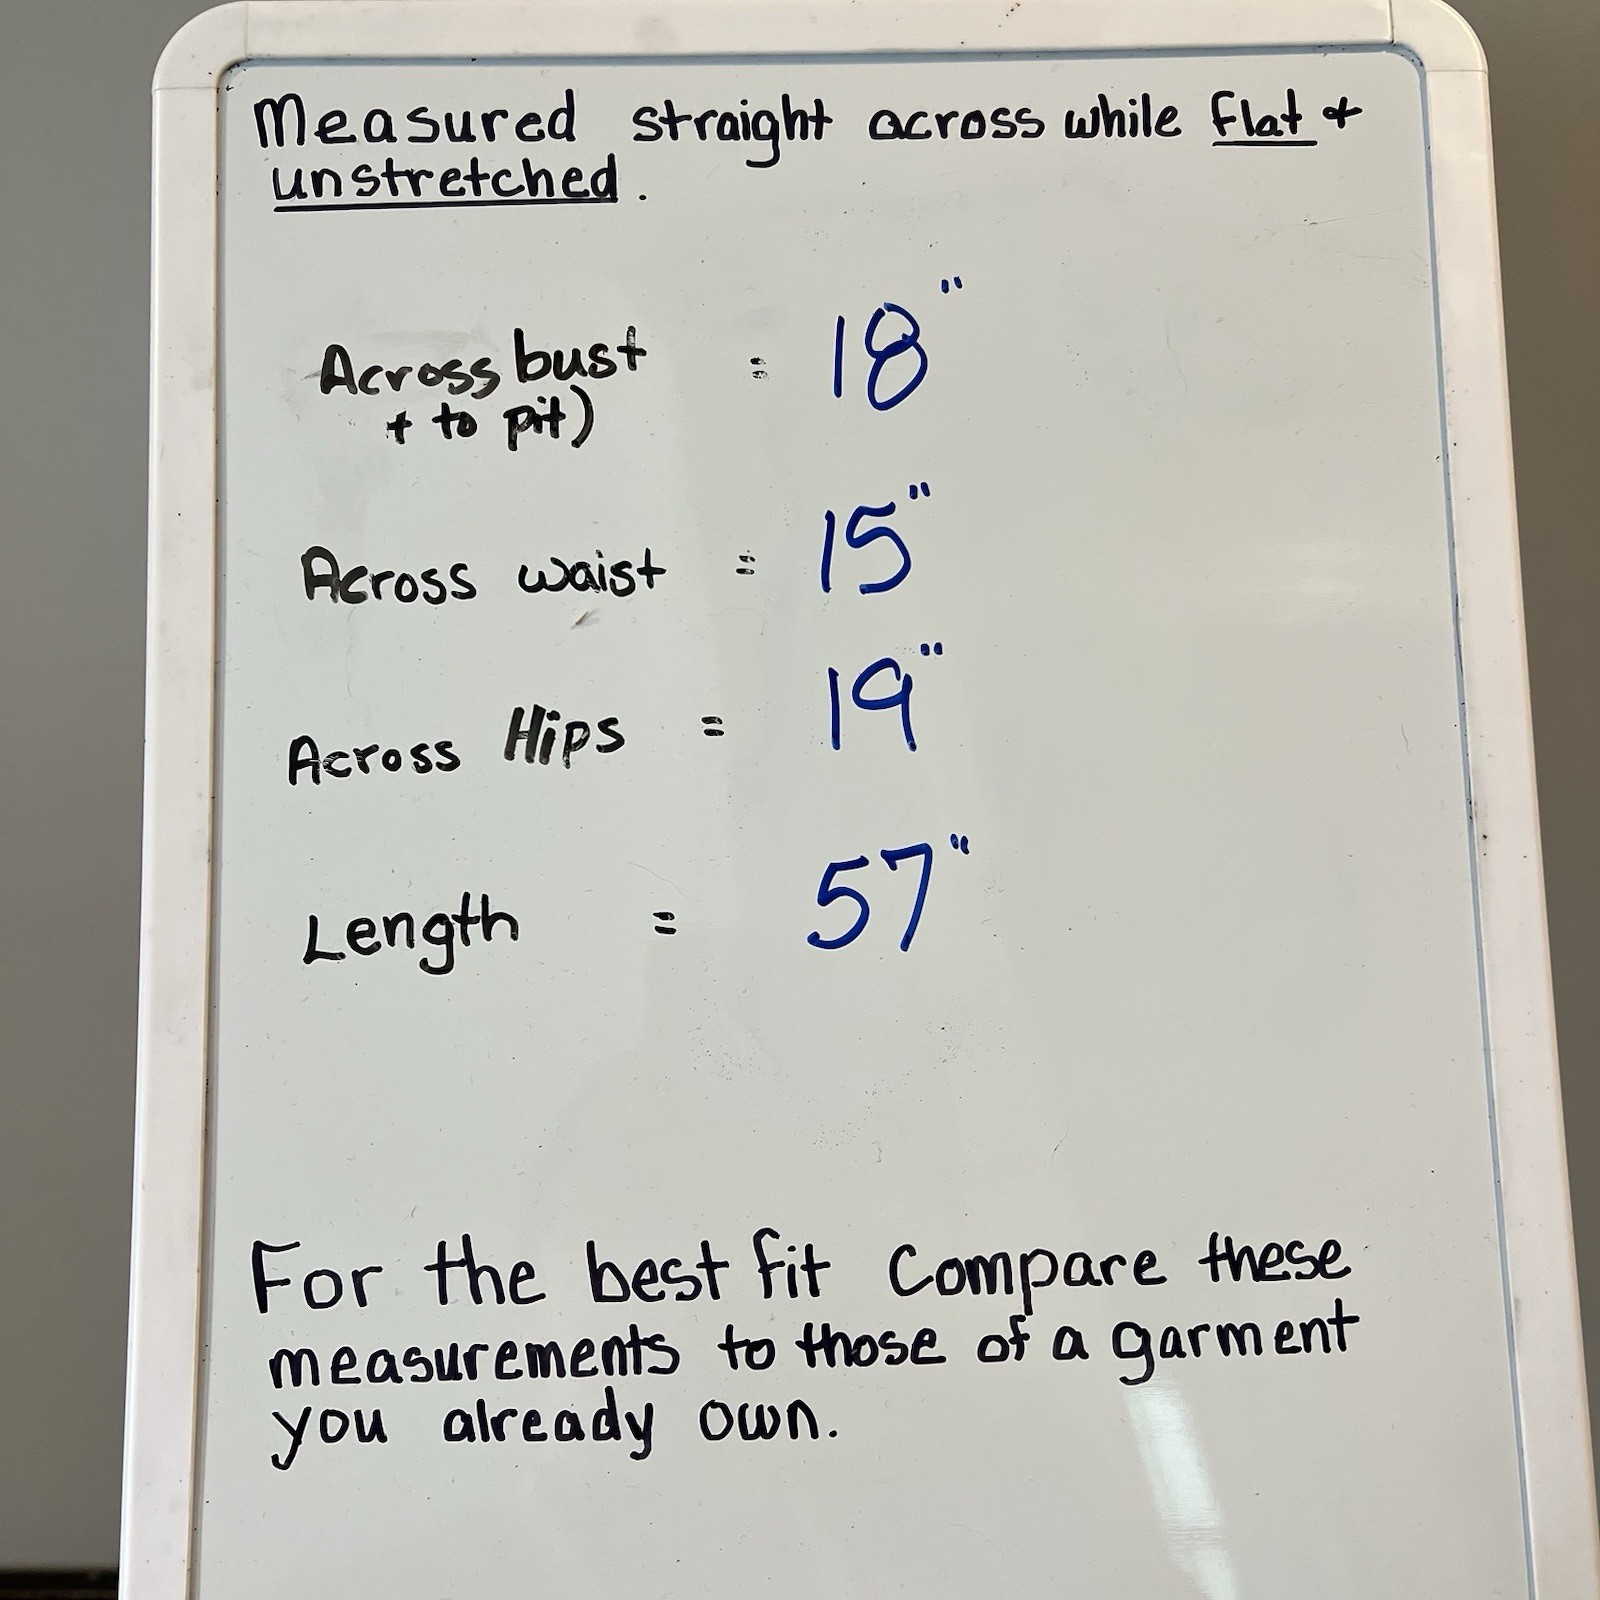 Measured straight across while flat +
unstretched.
Across bust = 18"
t to pit)
Across waist = 15"
Across Hips = 19"
Length = 57"
For the best fit Compare these
measurements to those of a garment
you already own.